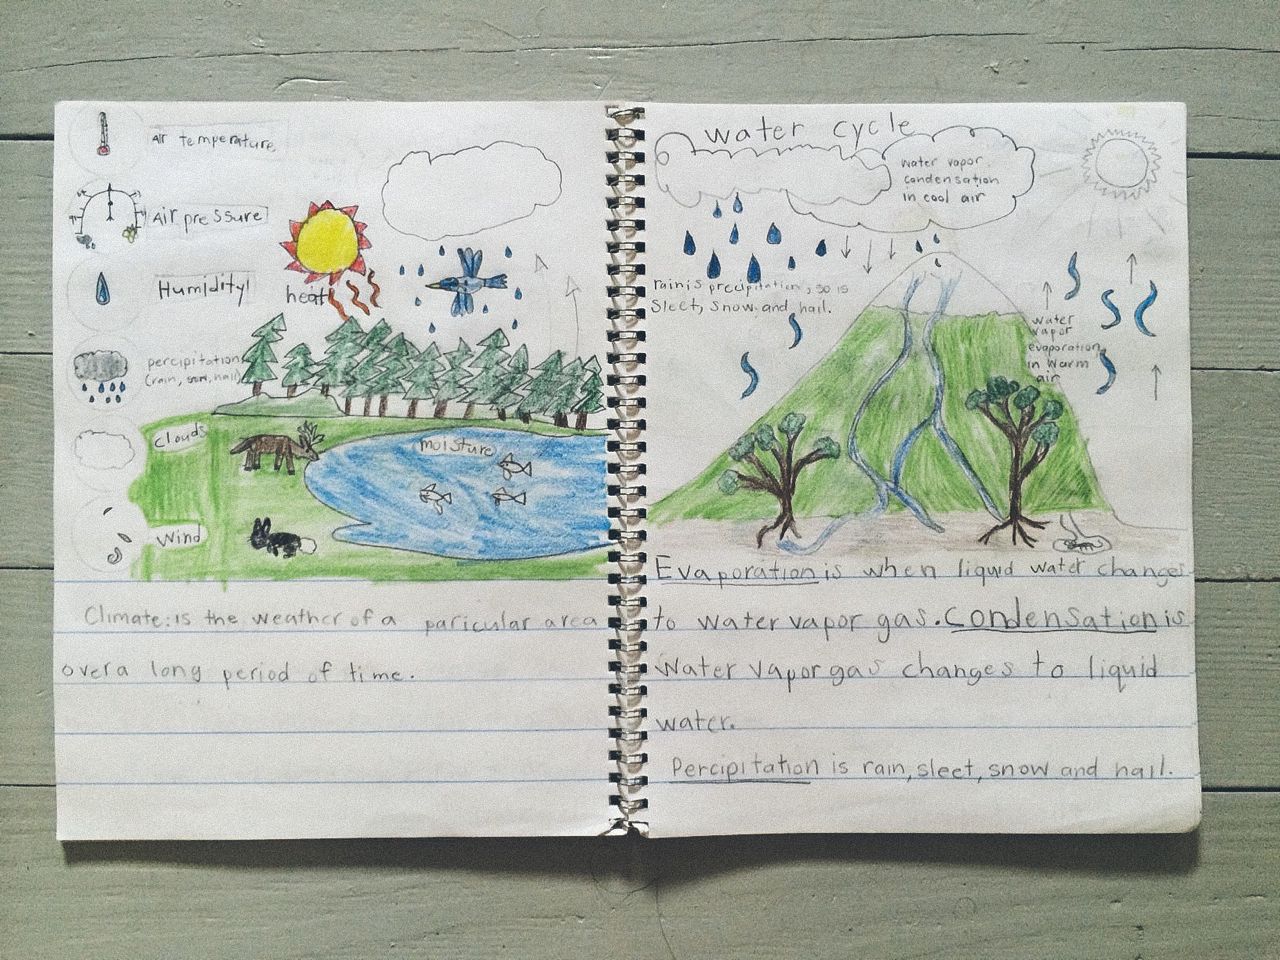 Air temperature,
Air pressure
Humidity!
heat
percipitation
(rain, snow, hail)
clouds
moisture
Wind
Climate: is the weather of a paricular area
over a long period of time.
water cycle
water vapor
condensation
in cool air
rain is precipitation, so is
Sleet, snow, and hail.
water
vapor
evaporation
in warm
air
Evaporation is when liquid water changes
to water vapor gas. Condensation is
Water vapor gas changes to liquid
water.
Percipitation is rain, sleet, snow and hail.